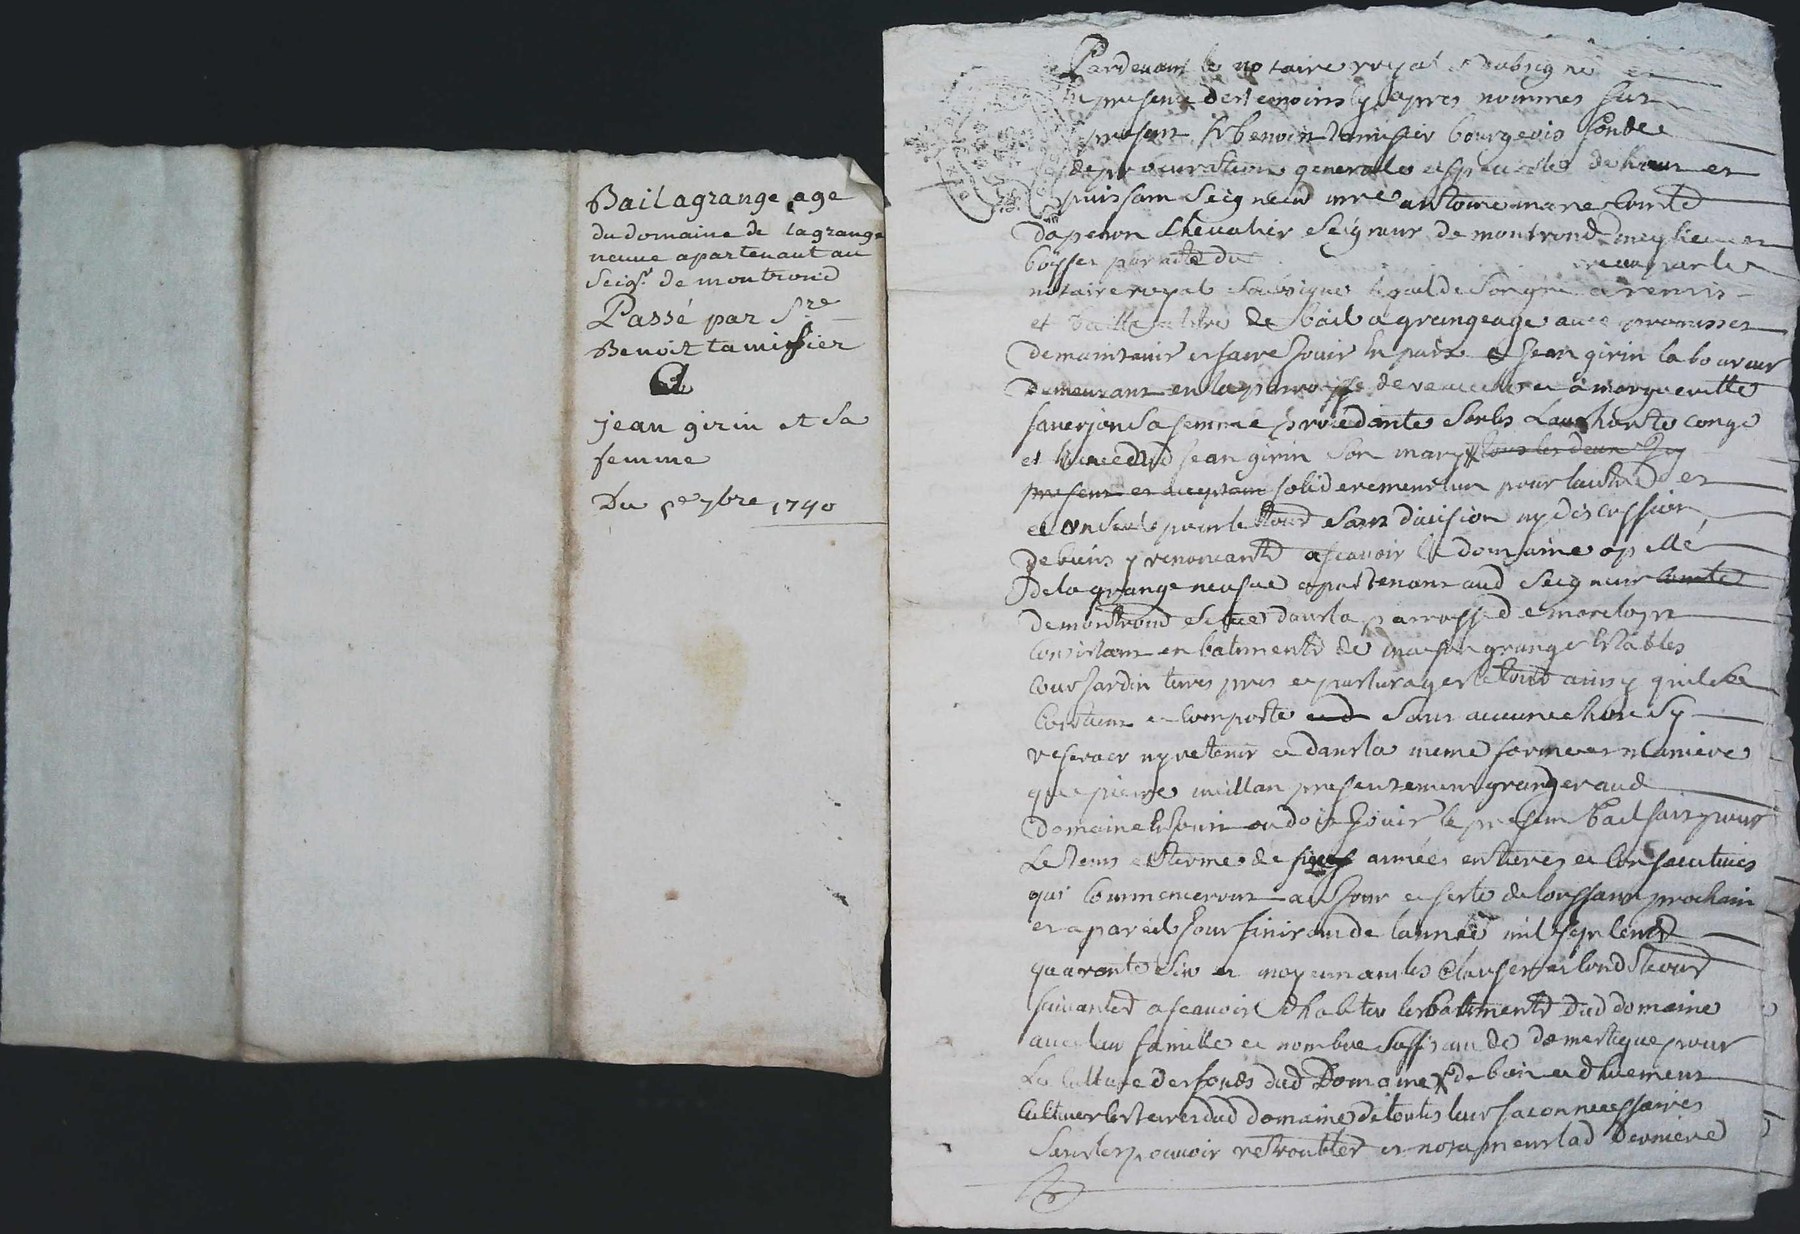 Bail a grangeage
du domaine de lagrange
neuve apartenant au
Seigr. de montrond
Passé par Sre
Benoit tamisier
A
jean girin et sa
femme
Du 1er 7bre 1740
Pardevant le notaire royal soubsigné et
en presence des temoins cy apres nommes fut
present sr benoit tamisier bourgeois fondé
de procuration generale et specialle de haut et
puissant Seigneur mre antoine marie Comte
dapchon Chevalier Seigneur de montrond
par acte du receu par le
notaire royal soubsigné lequel de son gré a remis
et baillé a titre de bail a grangeage avec promesse
de maintenir et faire jouir en paix a jean girin laboureur
demeurant en la parroisse de veauche et a margueritte
faverjon sa femme procedante soubs lauthorité congé
et licence dud jean girin son mary tous les deux icy
present et acceptant solidairement lun pour lautre et
et un seul pour le tout sans division ny discussion
de biens y renoncants ascavoir le domaine apellé
de la grange neufve apartenant aud Seigneur Comte
de montrond scitué dans la parroisse de
Consistant en batiments de maison grange Estables
cour jardin terres pres et pasturages le tout ainsy quil se
Contient et comporte sans aucune chose sy
reserver ny retenir et dans la meme forme et maniere
que pierre millan presentement granger aud
domaine En jouit ou doit jouir le present bail fait pour
le tems et terme de six années entieres et consecutives
qui commenceront au jour et feste de toussaint prochain
et a pareil jour finiront de lannée mil sept cent
quarante six et moyenant les clauses et conditions
suivantes ascavoir dhabiter les batiments dud domaine
avec leur famille et nombre suffisant de domestique pour
La culture des fonds dud Domaine de bien et duement
cultiver les terres dud domaine de toutes leur facon necessaires
sans les pouvoir retroubler et notament lad derniere